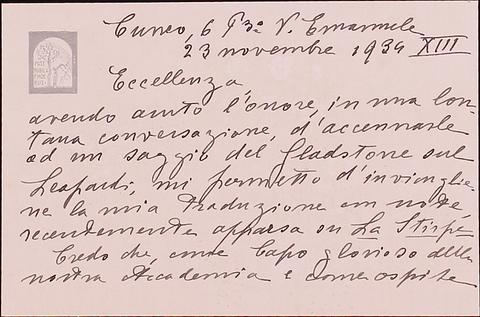 Cuneo, 6 P.za V. Emanuele
23 novembre 1934 XIII
Eccellenza
avendo avuto l'onore, in una lon-
tana conversazione, d'accennarle
ad un saggio del Gladstone sul
Leopardi, mi permetto d'inviarglie-
ne la mia traduzione con note,
recentemente apparsa su La Stirpe
Credo che, come Capo glorioso della
nostra Accademia e come ospite